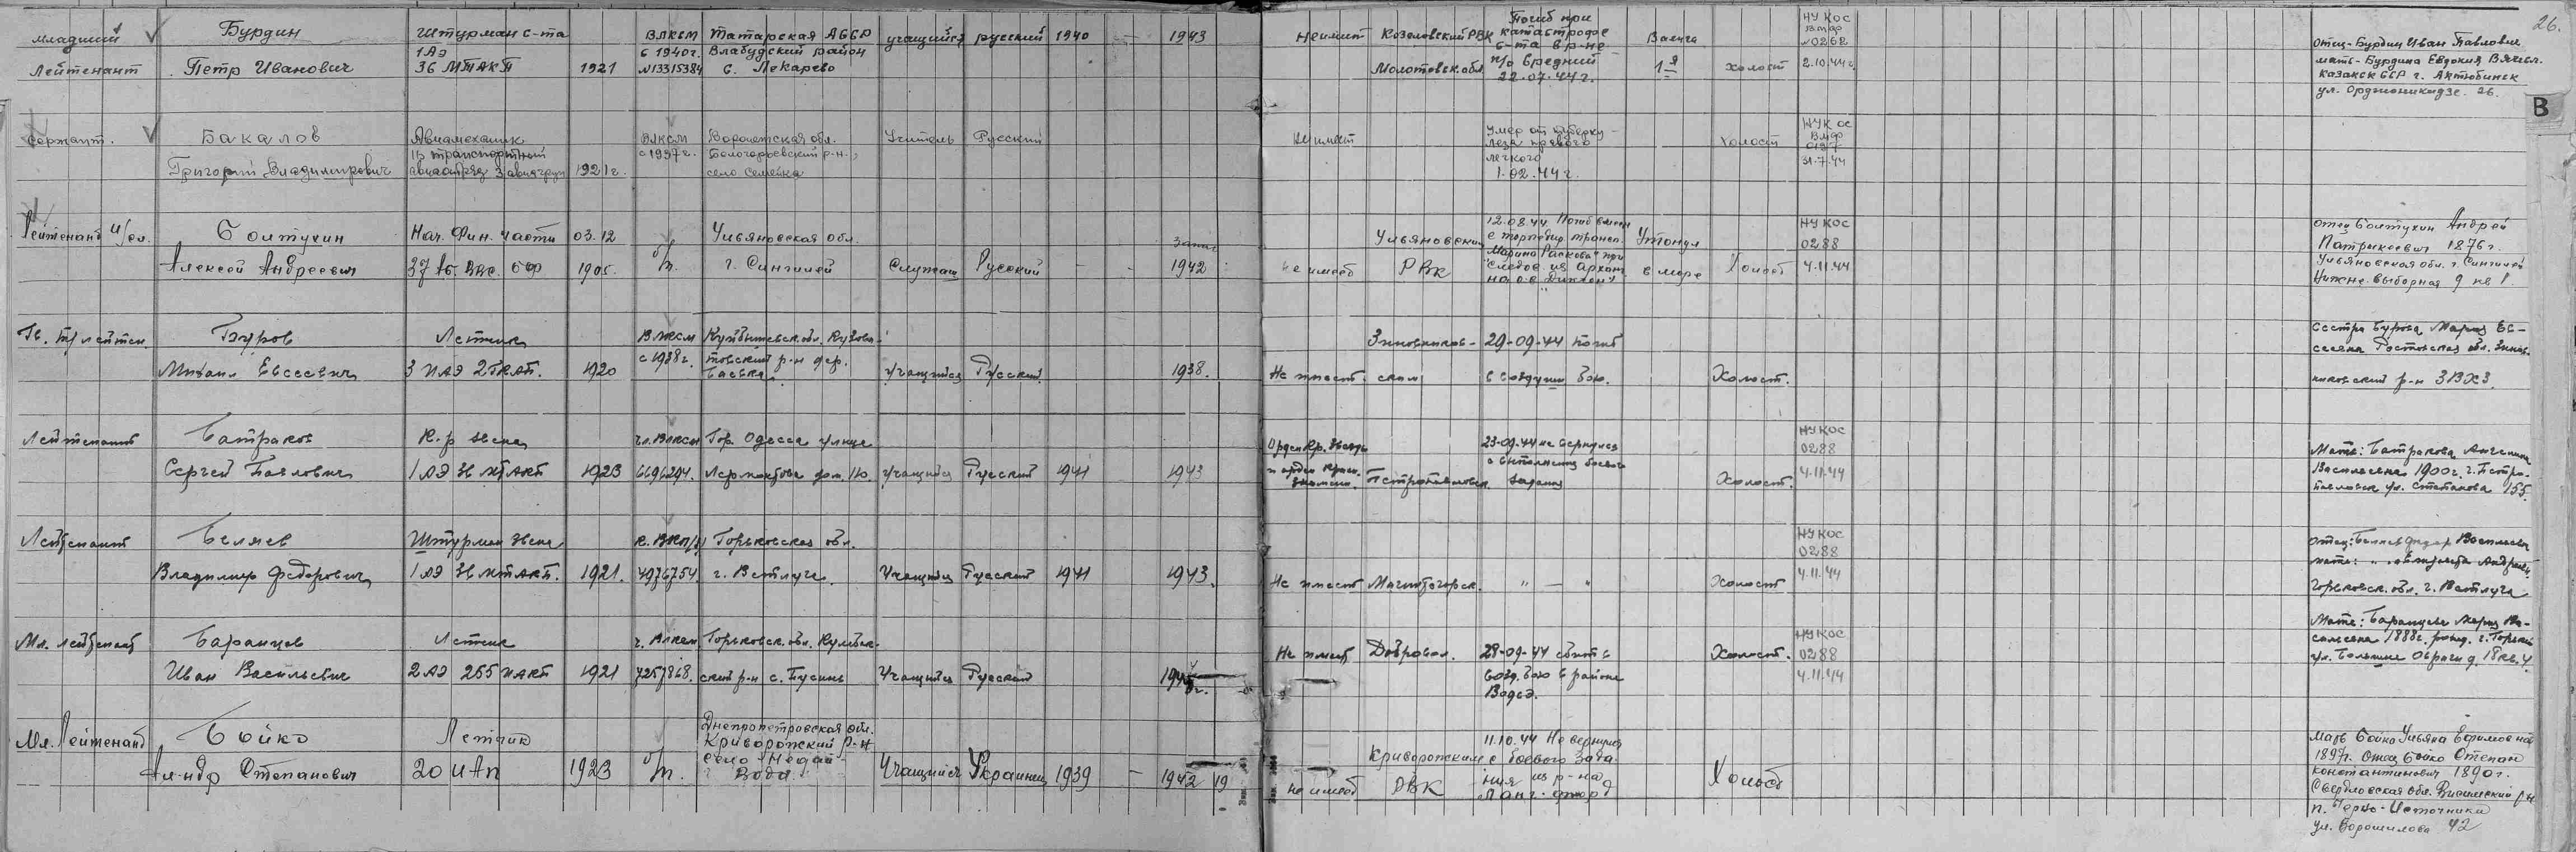 26.
В
младший Лейтенант
Бурдин
Петр Иванович
Штурман с-та
1АЭ
36 МТАКП
1921
ВЛКСМ
с 1940г.
№13315384
Татарская АССР
Елабудский район
с. Лекарево
учащийся
русский
1940
—
1943
Неимеет
Козеловский РВК
Молотовск. обл.
Погиб при
катастрофе
с-та в р-не
п/о Средний
22.07.44г.
Ваенга
1я
холост
НУ КОС
ВМФ
№0262
2.10.44г.
отец-Бурдин Иван Павлович
мать-Бурдина Евдокия Вячесл.
Казахск ССР г. Актюбинск
ул. Орджоникидзе. 26.
сержант.
Бакалов
Григорий Владимирович
Авиамеханик
транспортный
авиаотряд 3 авиагруп
1921г.
ВЛКСМ
с 1937г.
Воронежская обл.
Белогорьевский р-н.,
село Семейка
Учитель
Русский
Неимеет
Умер от туберку-
леза правого
легкого
1.02.44г.
Холост
НУК ОС
ВМФ
31.7.44
Лейтенант и/сл.
Болтухин
Алексей Андреевич
Нач. Фин. части
37 Аб. ВВС. СФ
03.12
1905.
б/п.
Ульяновская обл.
г. Сингилей
Служащ
Русский
—
—
1942
Не имеет
Ульяновский
РВК
12.08.44 Погиб вместе
с трансп.
"Марина Раскова" при
след. из Архан.
на о-в "Диксон"
Утонул
в море
Холост
НУ КОС
0288
4.11.44
отец Болтухин Андрей
Патрикеевич 1876г.
Ульяновская обл. г. Сингилей
Нижне-Выборная 9 кв 1.
Гв. мл. лейтен.
Буров
Михаил Евсеевич
Летчик
3 ИАЭ 2ГКАП.
1920
ВЛКСМ
с 1938г.
Куйбышевск. обл. Кузова-
товский р-н дер.
Баевка.
Учащийся
Русский
1938.
Не имеет.
Зимовников-
ским
29-09-44 погиб
в воздушн бою.
Холост.
Сестра Бурова Мария Ев-
сеевна Ростовская обл. Зимов-
никовский р-н ЗВХЗ.
Лейтенант
Батраков
Сергей Павлович
К-р звена
1 АЭ 36 МТАКП
1923
чл. ВЛКСМ
6696294.
Гор. Одесса улица
Лермонтова дом. 10.
учащийся
Русский
1941
1943
Орден Кр. Звезды
и орден Красн.
знамени.
Петропавловск.
23-09-44 не вернулся
с выполнения боевого
задания
Холост.
НУ КОС
0288
4.11.44
Мать: Батракова Ангелина
Васильевна 1900г. г. Петро-
павловск ул. Степанова 155.
Лейтенант
Беляев
Владимир Федорович
Штурман звена
1 АЭ 36 МТАКП.
1921.
к. ВКП/б/
4976754
Горьковская обл.
г. Ветлуга.
Учащийся
Русский
1941
1943.
Не имеет
Магнитогорск.
" — "
Холост
НУ КОС
0288
4.11.44
Отец: Беляев Федор Васильевич
мать: " Андреевн.
Горьковск. обл. г. Ветлуга
Мл. лейтенант
Баранцев
Иван Васильевич
Летчик
2 АЭ 255 ИАКП
1921
ч. ВЛКСМ
7257868.
Горьковск. обл.
ский р-н с.
Учащийся
Русский
Не имеет
Доброволь.
28-09-44 сбит в
возд. бою в районе
Вадсэ.
Холост.
НУ КОС
0288
4.11.44
Мать: Баранцева Мария Ва-
сильевна 1888г. рожд. г. Горький
ул. Большие Овраги д. 18 кв. 4
Мл. Лейтенант
Бойко
Ал-ндр Степанович
Летчик
20 иАп
1923
б/п.
Днепропетровская обл.
Криворожский р-н
село Недай-
Вода.
Учащийся
Украинец
1939
—
1942
19
Не имеет
Криворожским
РВК
11.10.44 Не вернулся
с боевого Зада-
ния из р-на
Ланг-фиорд
Холост
Мать Бойко Ульяна Ефимовна
1897г. Отец Бойко Степан
Константинович 1890г.
Свердловская обл. Висимский р-н
п. Черно-Источники
ул. Ворошилова 42